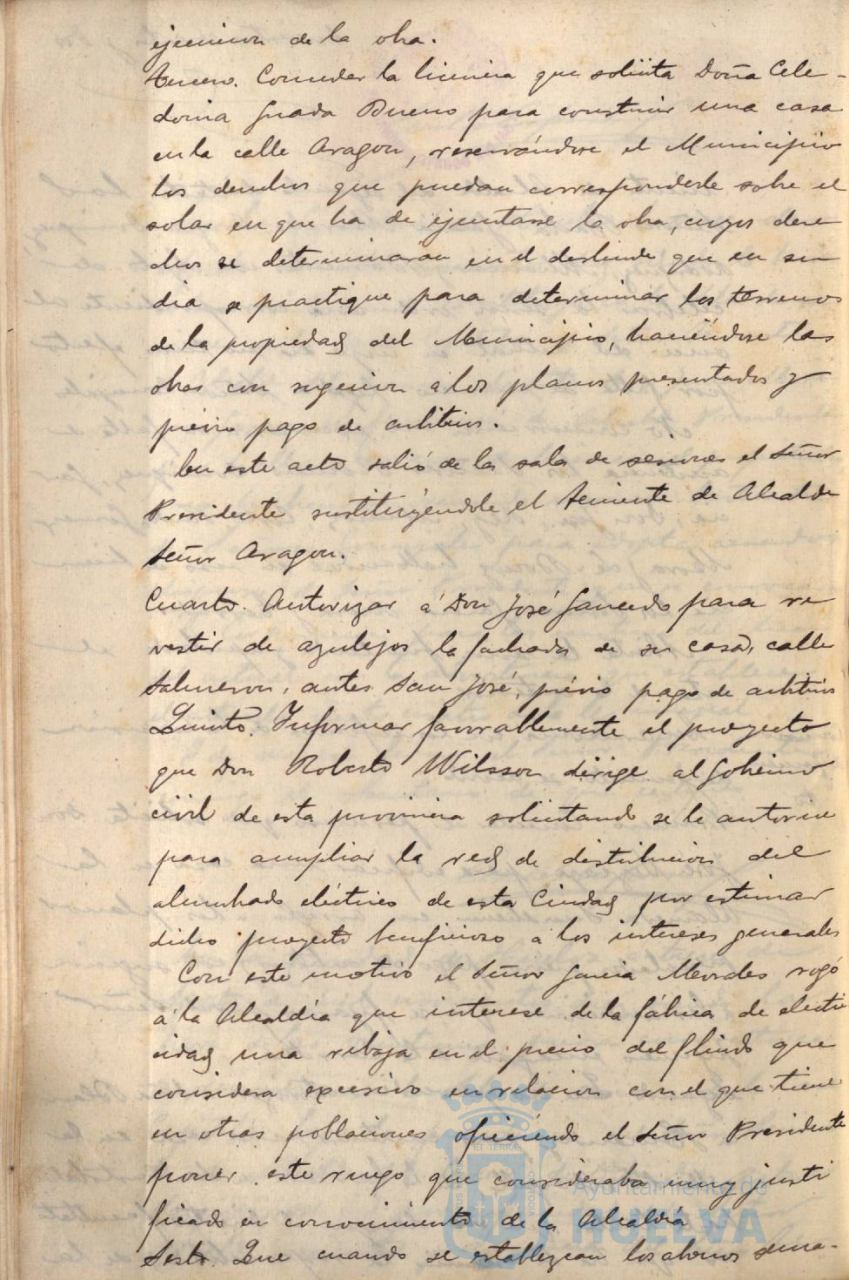 ejecucion de la obra.
Tercero. Conceder la licencia que solicita Doña Cele-
donia Guada Bueno para construir una casa
en la calle Aragon, reservándose el Municipio
los derechos que puedan corresponderle sobre el
solar en que ha de ejecutarse la obra, cuyos dere
chos se determinarán en el deslinde que en su
dia se practique para determinar los terrenos
de la propiedad del Municipio, haciéndose las
obras con sugecion a los planos presentados y
prévio pago de arbitrios.
En este acto salió de la sala de sesiones el Señor
Presidente sustituyéndole el Teniente de Alcalde
Señor Aragon.
Cuarto. Autorizar á Don José Saucedo para re
vestir de azulejos la fachada de su casa, calle
Salmeron, antes San José, prévio pago de arbitrios
Quinto. Informar favorablemente el proyecto
que Don Roberto Wilsson dirige al Gobierno
civil de esta provincia solicitando se le autorice
para ampliar la red de distribucion del
alumbrado eléctrico de esta Ciudad por estimar
dicho proyecto beneficioso a los intereses generales
Con este motivo el Señor Garcia Morales rogó
á la Alcaldía que interese de la fábrica de electri
cidad una rebaja en el precio del fluido que
considera excesivo en relacion con el que tiene
en otras poblaciones ofreciendo el Señor Presidente
poner este ruego que consideraba muy justi
ficado en conocimiento de la Alcaldía
Sesto. Que cuando se establezcan los abonos sema-
Ayuntamiento de
HUELVA